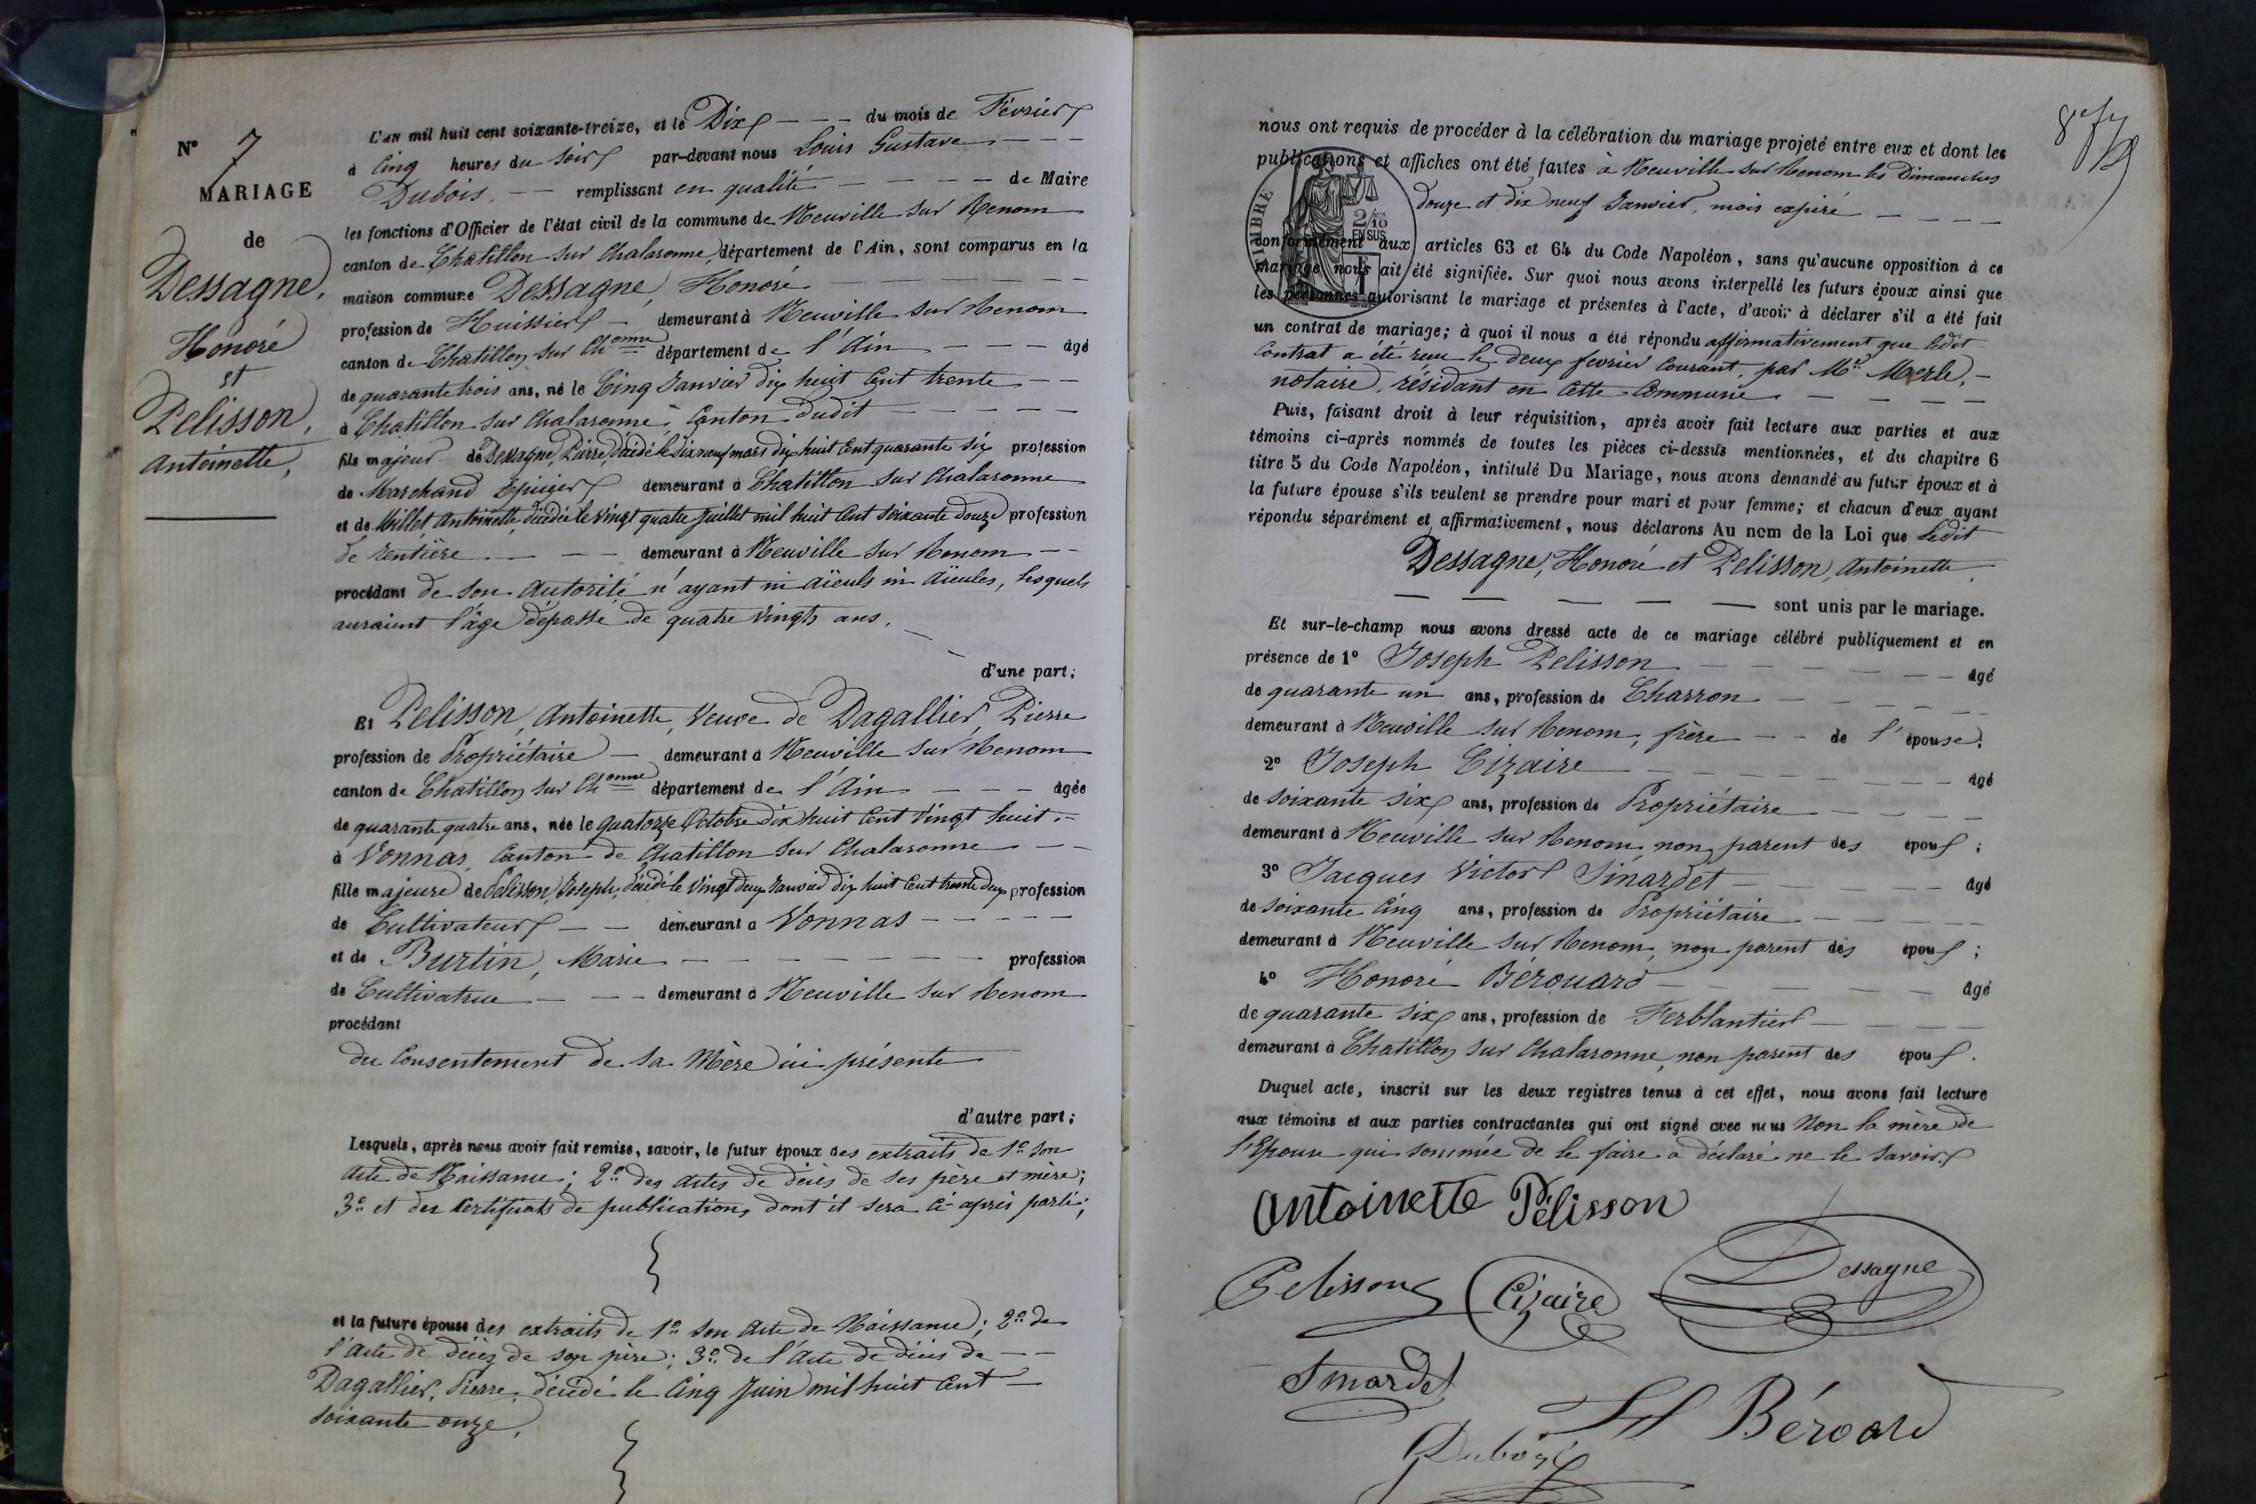 N° 7
MARIAGE
de
Dessagne,
Honoré
et
Pelisson,
Antoinette,
L'AN mil huit cent soixante-treize, et le Dix du mois de Février
à Cinq heures du Soir par-devant nous Louis Gustave
Dubois, remplissant en qualité de Maire
les fonctions d'Officier de l'état civil de la commune de Neuville sur Renom
canton de Chatillon sur Chalaronne, département de l'Ain, sont comparus en la
maison commune Dessagne, Honoré
profession de Huissier demeurant à Neuville sur Renom
canton de Chatillon sur Ch onne département de l'Ain âgé
de quarante trois ans, né le Cinq Janvier dix huit Cent trente
à Chatillon sur Chalaronne, Canton dudit
fils majeur de Dessagne, Pierre, décédé le dix neuf mars dix huit Cent quarante six profession
de Marchand Epicier demeurant à Chatillon sur Chalaronne
et de Millet, Antoinette, décédée le vingt quatre Juillet mil huit Cent soixante douze profession
de rentière demeurant à Neuville sur Renom
procédant de son autorité n'ayant ni aïeuls ni aïeules, lesquels
auraient l'âge dépassé de quatre vingts ans,
d'une part;
Et Pelisson, Antoinette, Veuve de Dagallier, Pierre
profession de Propriétaire demeurant à Neuville sur Renom
canton de Chatillon sur Ch onne département de l'Ain âgée
de quarante quatre ans, née le quatorze Octobre Dix huit Cent Vingt huit.
à Vonnas, Canton de Chatillon sur Chalaronne
fille majeure de Pelisson, Joseph, décédé le Vingt deux Janvier dix huit Cent trente deux profession
de Cultivateur demeurant à Vonnas
et de Burtin, Marie profession
de Cultivatrice demeurant à Neuville sur Renom
procédant
du Consentement de sa Mère ici présente
d'autre part;
Lesquels, après nous avoir fait remise, savoir, le futur époux des extraits de 1° son
acte de Naissance; 2° des actes de décès de ses père et mère;
3° et des Certificats de publications dont il sera ci-après parlé;
et la future épouse des extraits de 1° son acte de Naissance; 2° de
l'acte de décès de son père; 3° de l'acte de décès de
Dagallier, Pierre, décédé le Cinq Juin mil huit Cent
soixante onze,
nous ont requis de procéder à la célébration du mariage projeté entre eux et dont les
publications et affiches ont été faites à Neuville sur Renom les Dimanches
douze et dix neuf Janvier, mois expiré
TIMBRE
2/10
EN SUS
conformément aux articles 63 et 64 du Code Napoléon, sans qu'aucune opposition à ce
mariage nous ait été signifiée. Sur quoi nous avons interpellé les futurs époux ainsi que
les personnes autorisant le mariage et présentes à l'acte, d'avoir à déclarer s'il a été fait
un contrat de mariage; à quoi il nous a été répondu affirmativement que ledit
Contrat a été reçu le deux février Courant, par Me Merle,
notaire, résidant en cette Commune.
Puis, faisant droit à leur réquisition, après avoir fait lecture aux parties et aux
témoins ci-après nommés de toutes les pièces ci-dessus mentionnées, et du chapitre 6
titre 5 du Code Napoléon, intitulé Du Mariage, nous avons demandé au futur époux et à
la future épouse s'ils veulent se prendre pour mari et pour femme; et chacun d'eux ayant
répondu séparément et affirmativement, nous déclarons Au nom de la Loi que ledit
Dessagne, Honoré et Pelisson, Antoinette,
sont unis par le mariage.
Et sur-le-champ nous avons dressé acte de ce mariage célébré publiquement et en
présence de 1° Joseph Pelisson âgé
de quarante un ans, profession de Charron
demeurant à Neuville sur Renom, frère de l'épouse;
2° Joseph Cizaire âgé
de soixante six ans, profession de Propriétaire
demeurant à Neuville sur Renom, non parent des époux;
3° Jacques Victor Sinardet âgé
de soixante Cinq ans, profession de Propriétaire
demeurant à Neuville sur Renom, non parent des époux;
4° Honoré Bérouard âgé
de quarante six ans, profession de Ferblantier
demeurant à Chatillon sur Chalaronne, non parent des époux.
Duquel acte, inscrit sur les deux registres tenus à cet effet, nous avons fait lecture
aux témoins et aux parties contractantes qui ont signé avec nous Non la mère de
l'Epouse qui sommée de le faire a déclaré ne le savoir.
Antoinette Pélisson
Pelisson Cizaire Dessagne
Sinardet
H Béroard
Dubois